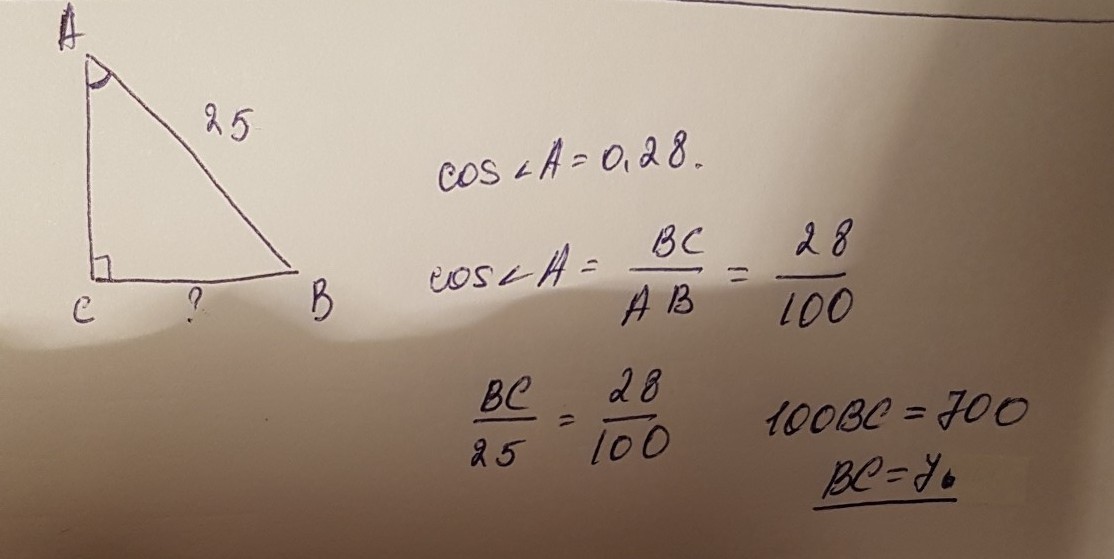 A
25
C
?
B
cos∠A = 0,28.
cos∠A = BC/AB = 28/100
BC/25 = 28/100
100BC = 700
BC = 7.